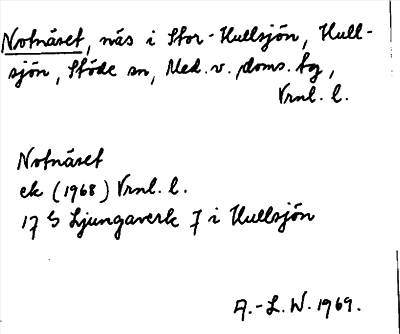 Notnäset, näs i Stor-Hullsjön, Hull-
sjön, Stöde sn, Med. v. doms. tg,
Vrnl. l.
Notnäset
ek (1968) Vrnl. l.
17 G Ljungaverk 7 i Hullsjön
A.-L. W. 1969.